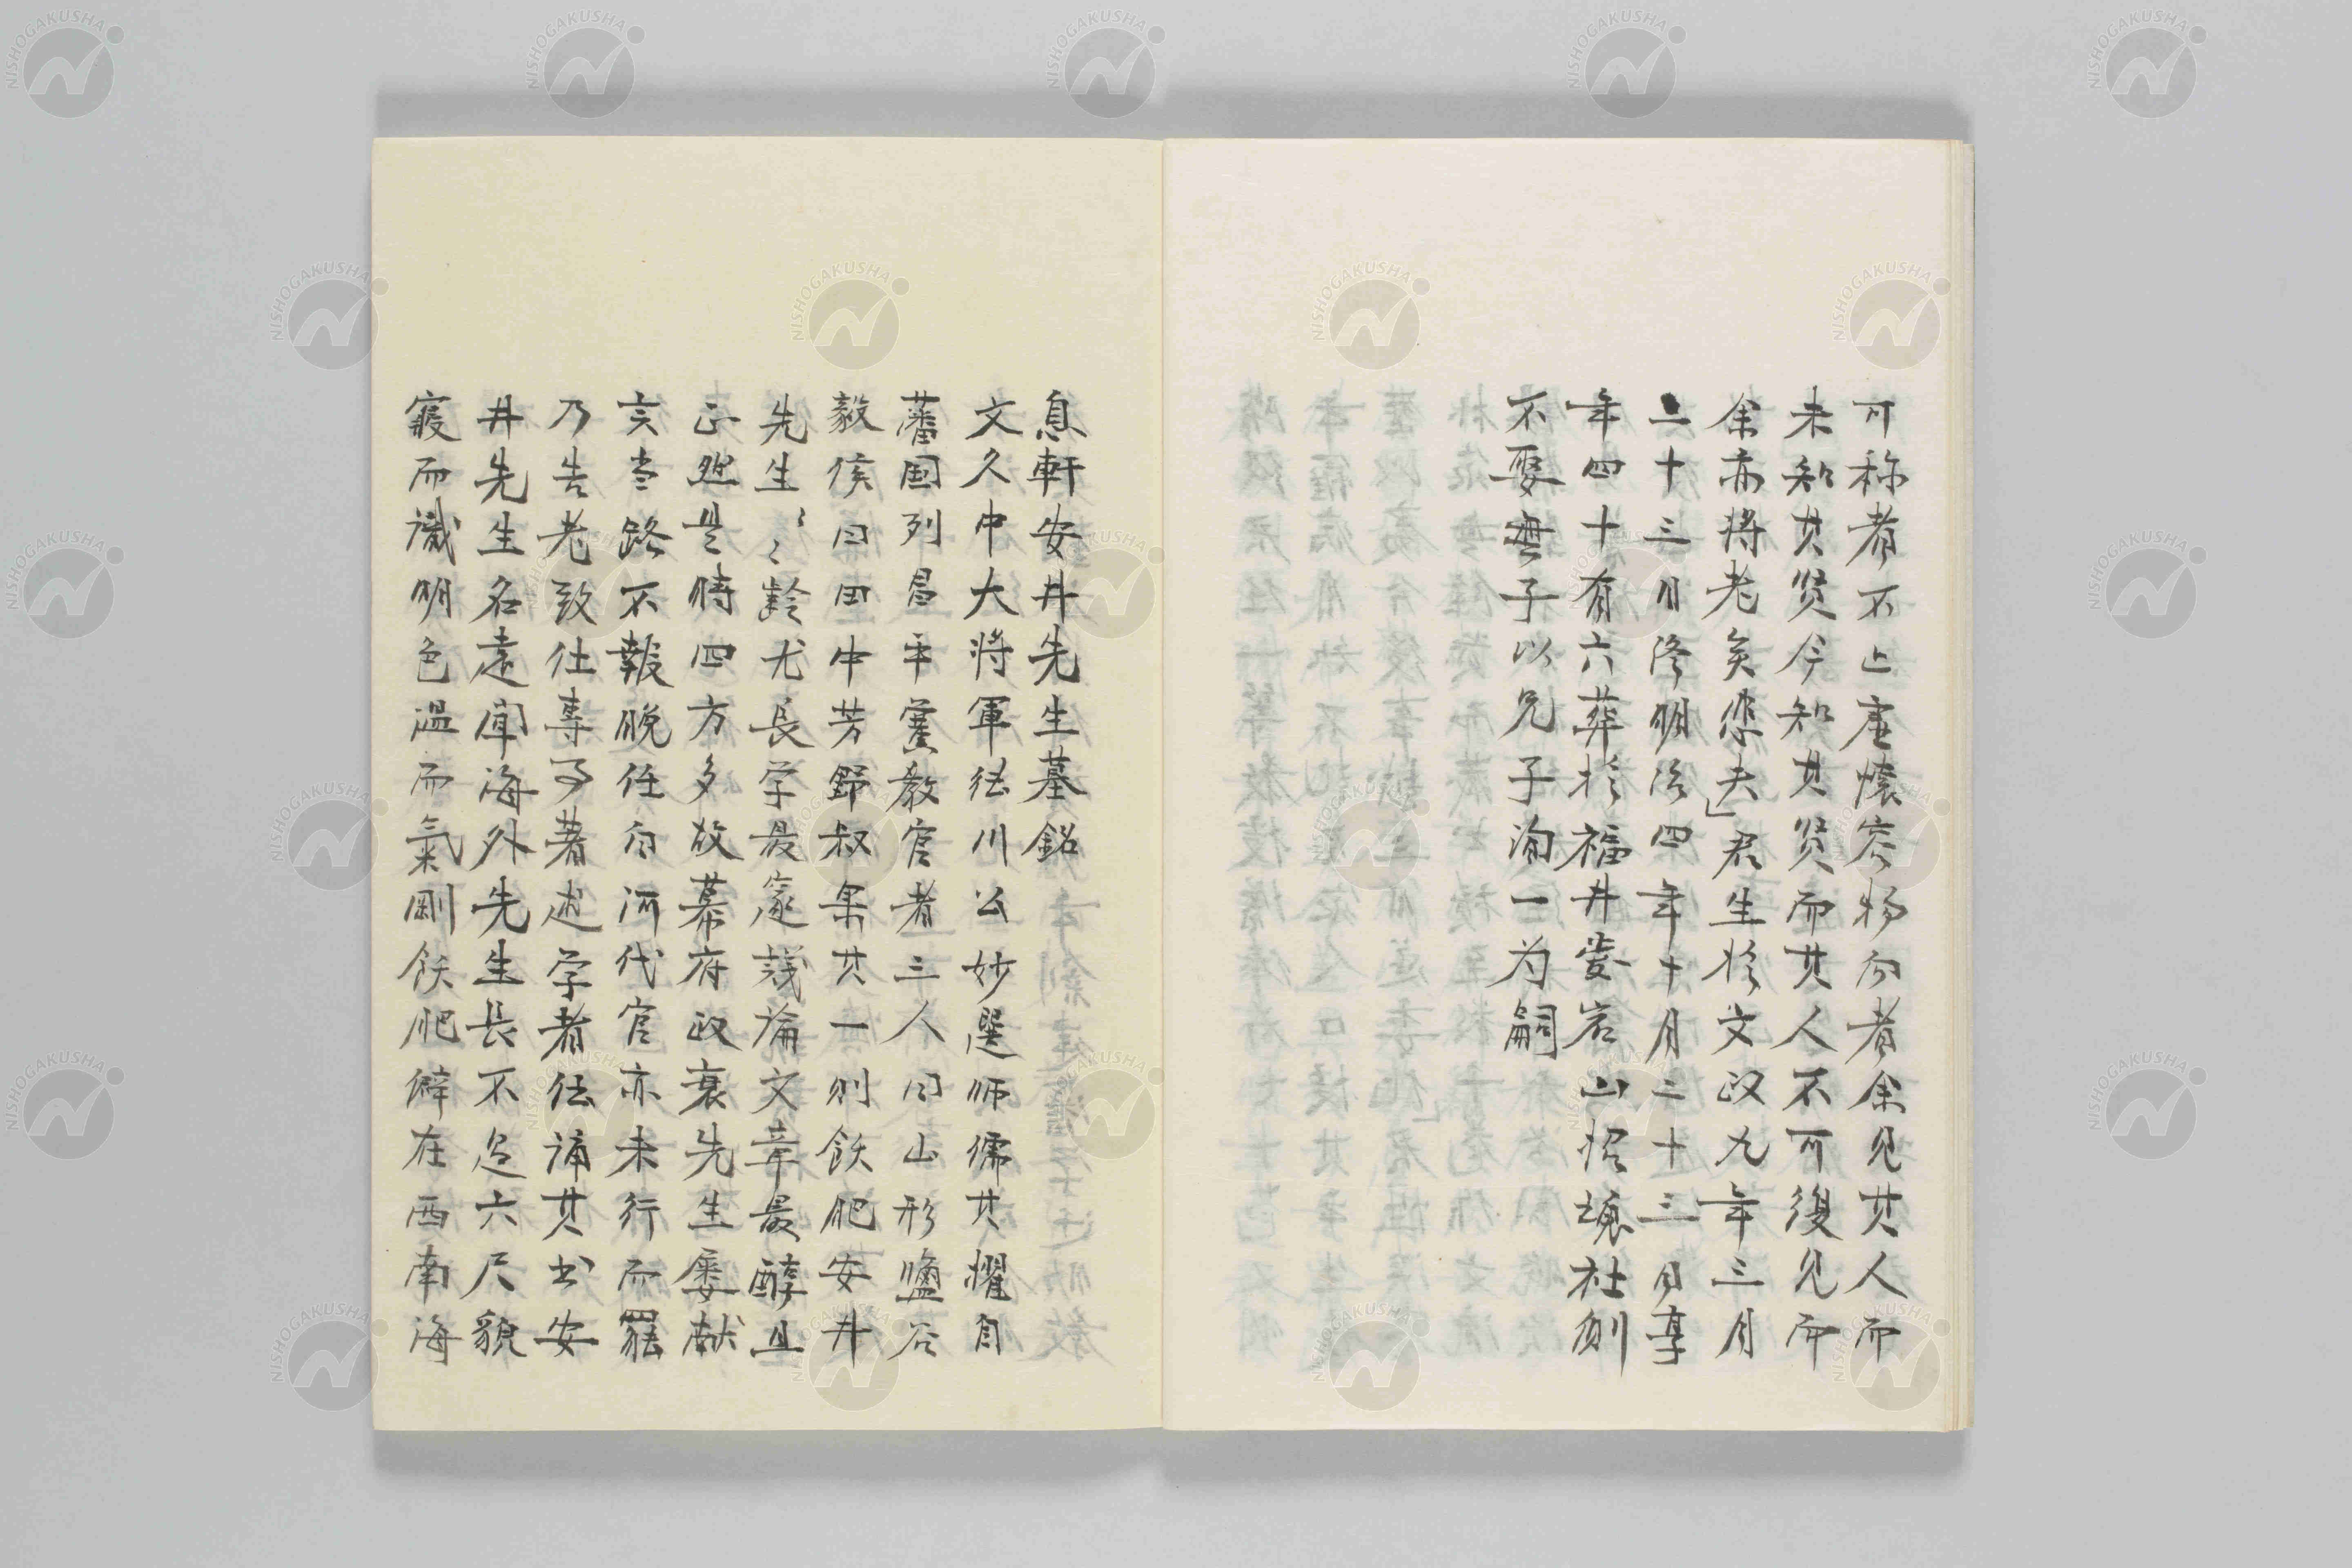 可称者不止虚懐容物而者余见其人而
未知其贤今知其贤而其人不可復见而
余亦将老矣悲夫」君生於文政九年三月
二十三日终明治四年十月二十三日享
年四十有六葬於福井愛宕山招魂社側
不娶無子以兄子洵一为嗣
息軒安井先生墓銘
文久中大将軍徳川公妙選师儒其擢自
藩国列昌平黌教官者三人曰山形鹽谷
毅侯曰田中芳野叔果其一則飫肥安井
先生〻〻齡尤長学最邃議論文章最醇且
正然是時四方多故幕府政衰先生屡献
言当路不報晩任白河代官亦未行而罷
乃告老致仕專事著述学者伝誦其书安
井先生名遠聞海外先生長不過六尺貌
寝而識明色温而氣剛飫肥僻在西南海
NISHOGAKUSHA